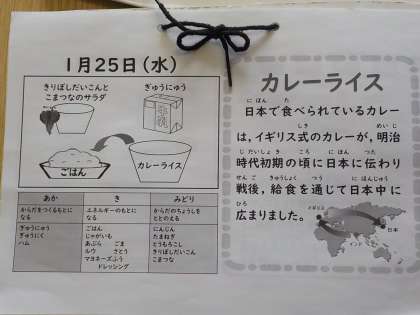 1月25日(水)
きりぼしだいこんと
こまつなのサラダ
ぎゅうにゅう
ごはん
カレーライス
あか
き
みどり
からだをつくるもとに
なる
エネルギーのもとに
なる
からだのちょうしを
ととのえる
ぎゅうにゅう
ぎゅうにく
ハム
ごはん
じゃがいも
あぶら ごま
ルウ さとう
マヨネーズふう
ドレッシング
にんじん
たまねぎ
とうもろこし
きりぼしだいこん
こまつな
カレーライス
にほん た
日本で食べられているカレー
しき めいじ
は、イギリス式のカレーが、明治
じだいしょき ころ にほん つた
時代初期の頃に日本に伝わり
せんご きゅうしょく つう にほんじゅう
戦後、給食を通じて日本中に
ひろ
広まりました。
イギリス
インド
日本